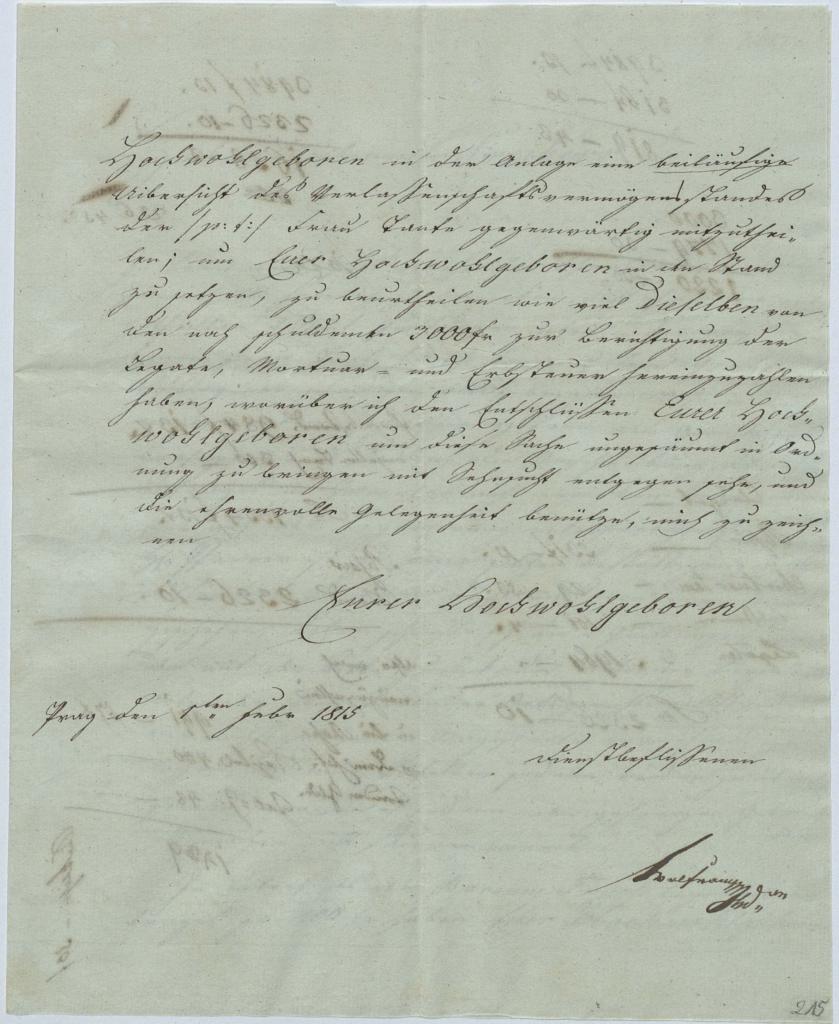 Hochwohlgeboren in der Anlage eine beiläufige
Uibersicht des Verlassenschaftsvermögensstandes
der /p: t:/ Frau Tante gegenwärtig mitzuthei-
len; um Euer Hochwohlgeboren in den Stand
zu setzen, zu beurtheilen wie viel Dieselben von
den noch schuldenden 3000 fr zur Berichtigung der
Legate, Mortuar- und Erbsteuer hereinzuzahlen
haben, worüber ich den Entschlüssen Eurer Hoch-
wohlgeboren um diese Sache ungesäumt in Ord-
nung zu bringen mit Sehnsucht entgegen sehe, und
die ehrenvolle Gelegenheit benütze, mich zu zeich-
nen
Eurer Hochwohlgeboren
Prag den 1ten Febr 1815
Dienstbeflissenen
215